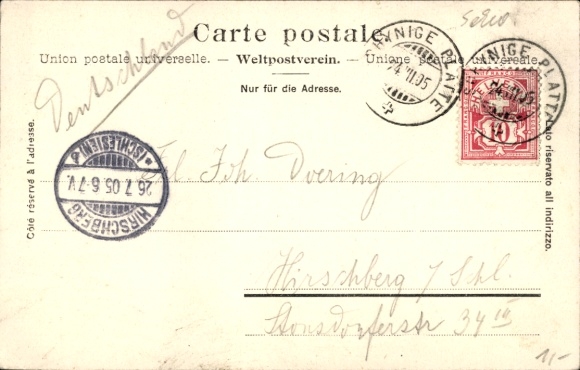 Carte postale.
Union postale universelle. - Weltpostverein. - Unione postale universale.
Nur für die Adresse.
Deutschland
SCHYNIGE PLATTE
24.VII.05
SCHYNIGE PLATTE
24.VII.05
10
HIRSCHBERG
26.7.05.6-7V.
*(SCHLESIEN)*
Côté réservé à l'adresse.
Lato riservato all indirizzo.
Frl. Joh. Doering
Hirschberg / Schl.
Stonsdorferstr 34 III
11,-